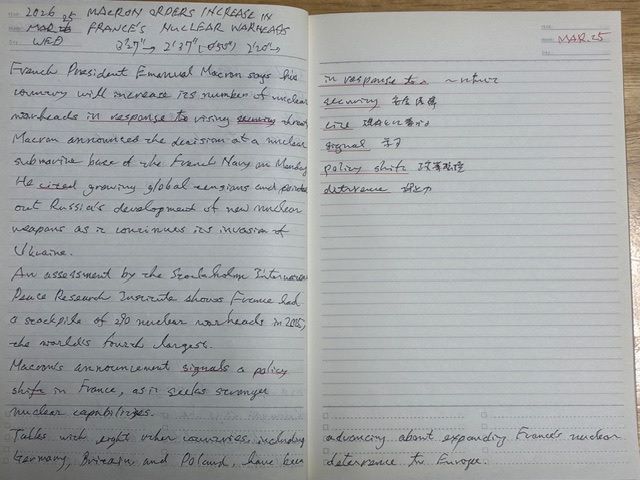 2026 25 MACRON ORDERS INCREASE IN
MAR. FRANCE'S NUCLEAR WARHEADS
WED 3'27" 2'37" (-0'50") 2'20"
French President Emanual Macron says his
country will increase its number of nuclear
warheads in response to rising security threat
Macron announced the decision at a nuclear
submarine base of the French Navy on Monday
He cited growing global tensions and pointed
out Russia's development of new nuclear
weapons as it continues its invasion of
Ukraine.
An assessment by the Stockholm International
Peace Research Institute shows France had
a stockpile of 290 nuclear warheads in 2025,
the world's fourth largest.
Macron's announcement signals a policy
shift in France, as it seeks stronger
nuclear capabilities.
Talks with eight other countries, including
Germany, Britain and Poland, have been
MAR. 25
in response to
security 安全保障
cite
signal 示す
policy shift 政策転換
deterrence 抑止力
advancing about expanding France's nuclear
deterrence to Europe.